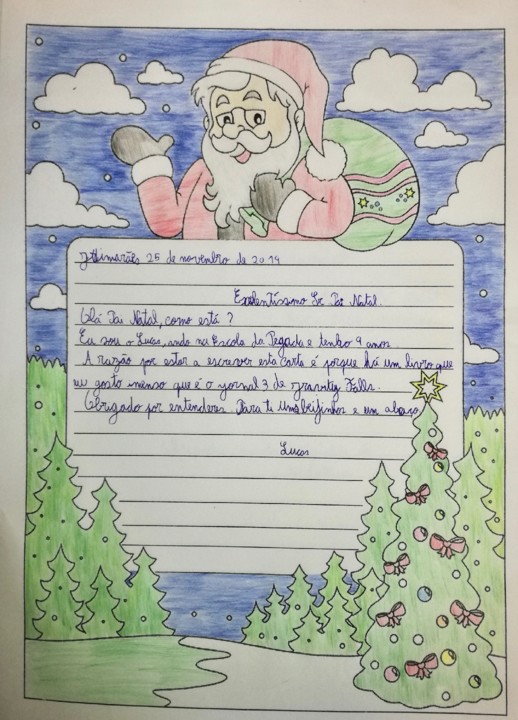 Guimarães 25 de novembro de 2019
Exelentíssimo Sr. Pai Natal.
Olá Pai Natal, como está ?
Eu sou o Lucas, ando na Escola da Pegada e tenho 9 anos.
A razão por estar a escrever esta carta é porque há um livro que
eu gosto imenso que é o jornal 3 de gravity Falls.
Obrigado por entenderes. Para ti uns beijinhos e um abraço
Lucas